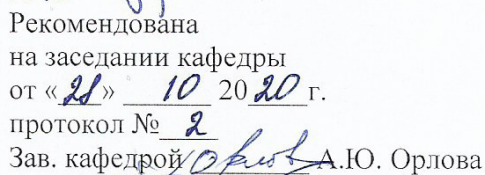 Рекомендована
на заседании кафедры
от «28» 10 2020 г.
протокол № 2
Зав. кафедрой А.Ю. Орлова